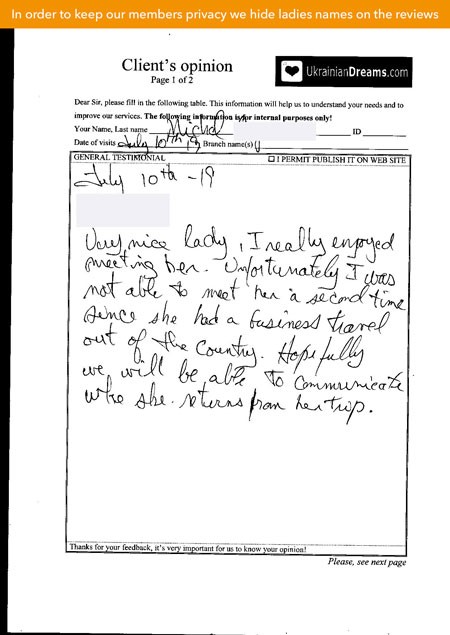 In order to keep our members privacy we hide ladies names on the reviews
Client's opinion
Page 1 of 2
UkrainianDreams.com
Dear Sir, please fill in the following table. This information will help us to understand your needs and to
improve our services. The following information is for internal purposes only!
Your Name, Last name Michel ID
Date of visits July 10th, 19 Branch name(s)
GENERAL TESTIMONIAL I PERMIT PUBLISH IT ON WEB SITE
July 10th - 19
Very nice lady, I really enjoyed
meeting her. Unfortunately I was
not able to meet her a second time
since she had a business travel
out of the Country. Hopefully
we will be able to communicate
she returns from her trip.
Thanks for your feedback, it's very important for us to know your opinion!
Please, see next page